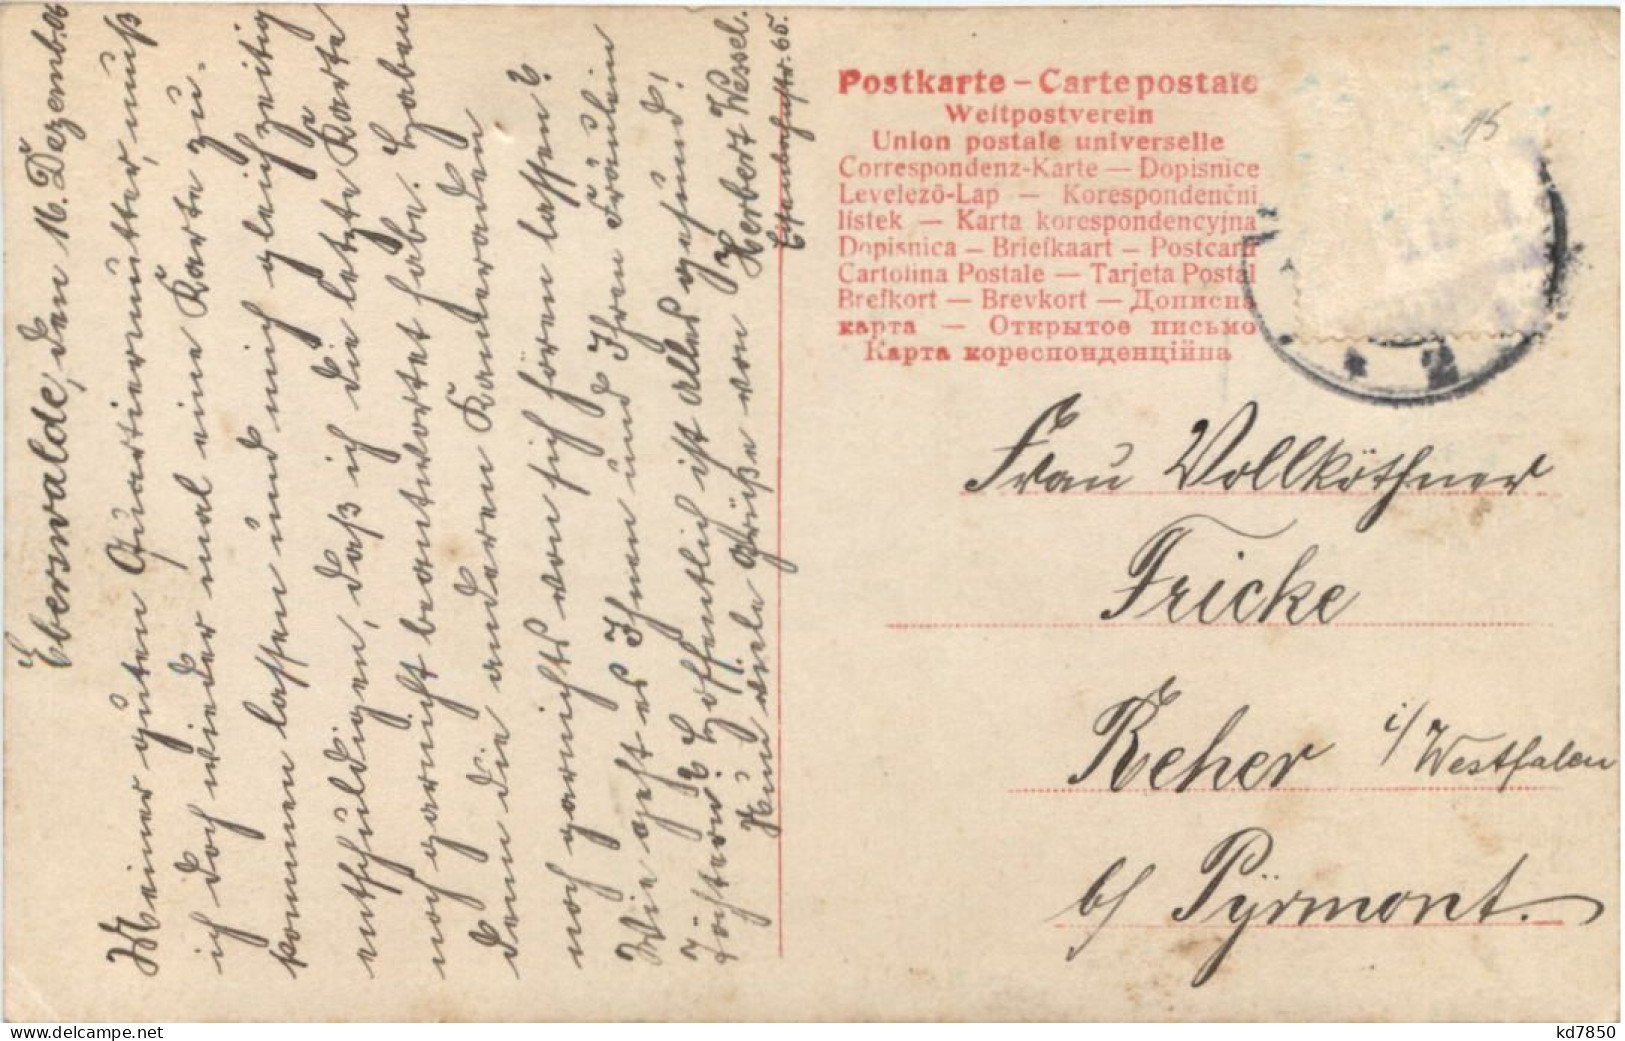 Eberswalde, den 16. Dezemb. 06
Meiner guten Quartiermutter, muß
ich doch wieder mal eine Karte zu-
kommen lassen und mich gleichzeitig
entschuldigen, daß ich die letzte Karte
noch garnicht beantwortet habe. Haben
denn die anderen Kameraden
noch garnichts von sich hören lassen?
Wie geht es Ihnen und Ihren Fräulein
Töchtern? Hoffentlich ist Alles gesund!
Nun viele Grüße von Herbert Wessel.
Eisenbahnstr. 65.
Postkarte – Carte postale
Weltpostverein
Union postale universelle
Correspondenz-Karte — Dopisnice
Levelező-Lap — Korespondenční
lístek — Karta korespondencyjna
Dopisnica — Briefkaart — Postcard
Cartolina Postale — Tarjeta Postal
Brefkort — Brevkort — Дописна
карта — Открытое письмо
Карта кореспонденційна
Frau Vollköthner
Fricke
Reher i/Westfalen
b/ Pÿrmont.
* 2
kd7850
www.delcampe.net